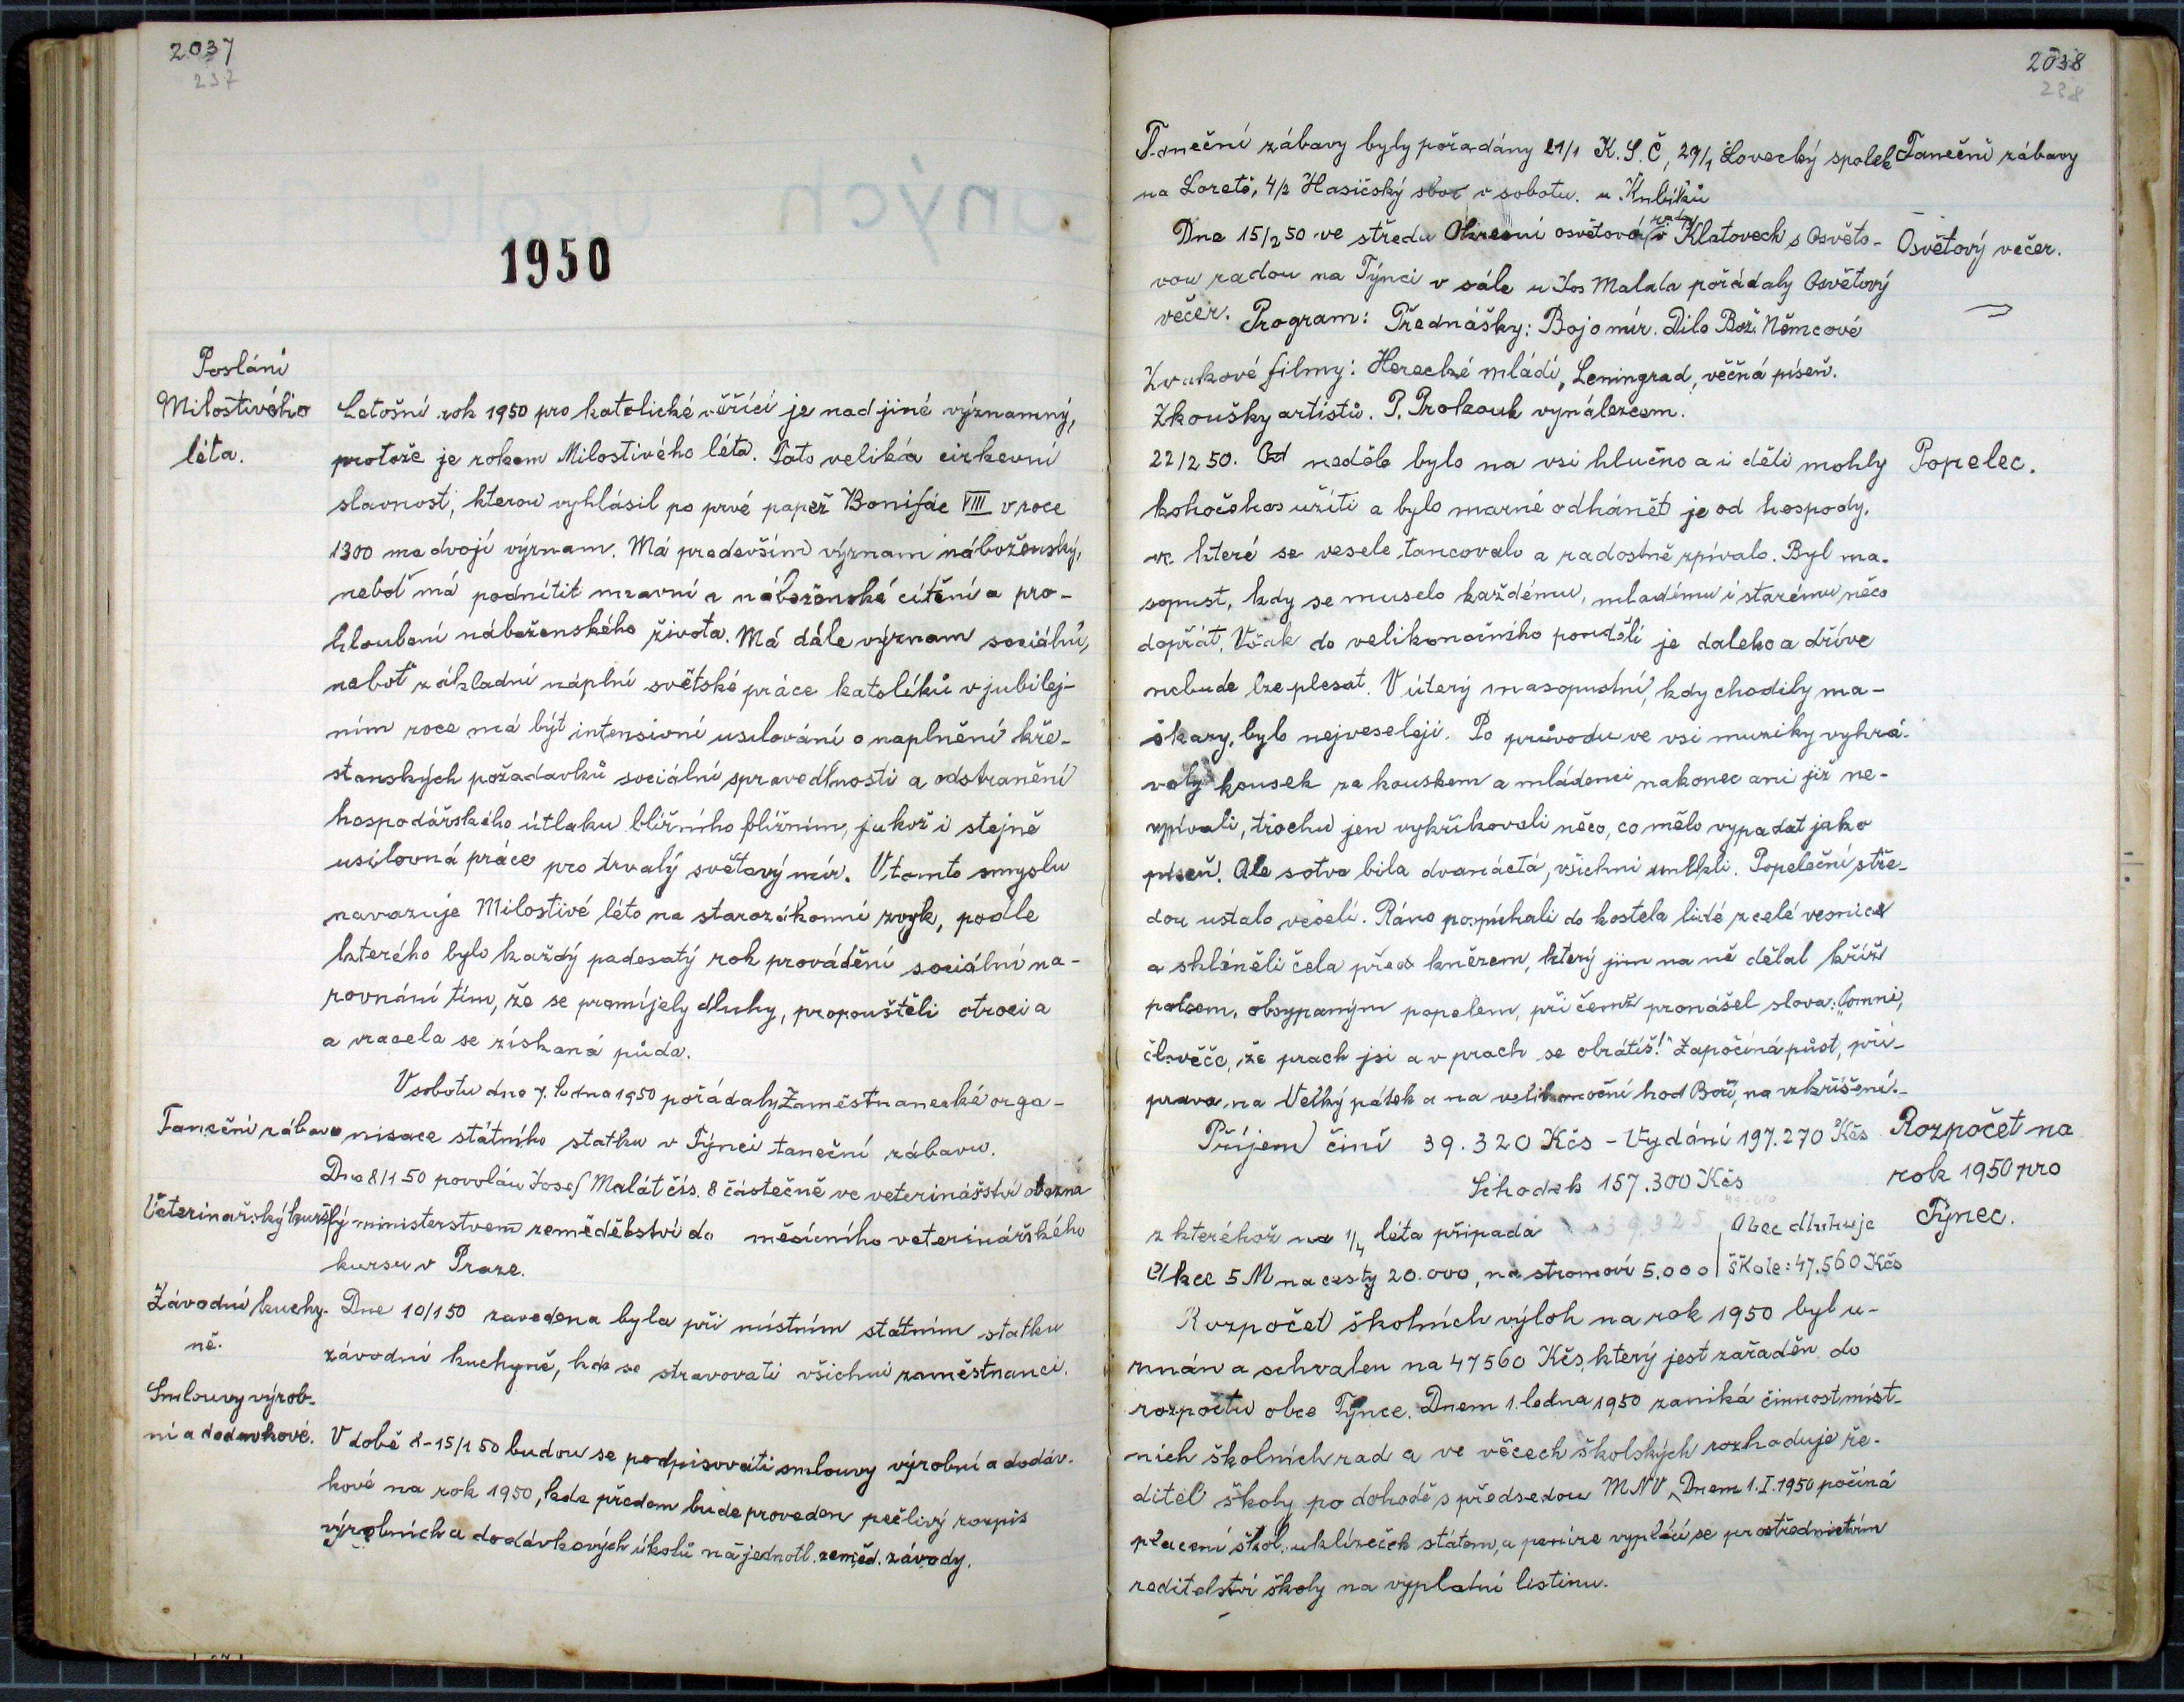 2037
237
1950
Poslání
Milostivého
léta.
Letošní rok 1950 pro katolické věřící je nad jiné významný,
protože je rokem Milostivého léta. Tato veliká církevní
slavnost, kterou vyhlásil po prvé papež Bonifác VIII v roce
1300 má dvojí význam. Má především význam náboženský,
neboť má podnítit mravní a náboženské cítění a pro-
hloubení náboženského života. Má dále význam sociální,
neboť základní náplní světské práce katolíků v jubilej-
ním roce má být intensivní usilování o naplnění kře-
stanských požadavků sociální spravedlnosti a odstranění
hospodářského útlaku bližního bližním, jakož i stejně
usilovná práce pro trvalý světový mír. V tomto smyslu
navazuje Milostivé léto na starozákonní zvyk, podle
kterého bylo každý padesatý rok provádění sociální na-
rovnání tím, že se promíjely dluhy, propouštěli otroci a
a vracela se získaná půda.
V sobotu dne 7. ledna 1950 pořádaly Zaměstnanecké orga-
Taneční zábava
nisace státního statku v Týnci taneční zábavu.
Dne 8/1 50 povolán Josef Malát čís. 8 částečně ve veterinářství obezna
Veterinařský kurs
lý ministerstvem zemědělství do měsíčního veterinářského
kursu v Praze.
Závodní kuchy-
ně.
Dne 10/1 50 zavedena byla při místním státním statku
závodní kuchyně, kde se stravovati všichni zaměstnanci.
Smlouvy výrob-
ní a dodavkové.
V době 8-15/1 50 budou se podpisovati smlouvy výrobní a dodáv-
kové na rok 1950, kde předem bude proveden pečlivý rozpis
výrobních a dodávkových úkolů na jednotl. zeměd. závody.
2038
238
Taneční zábavy byly pořadány 21/1 K.S.Č, 29/1 Lovecký spolek
Taneční zábavy
na Loretě, 4/2 Hasičský sbor v sobotu. u Kubíků
Dne 15/2 50 ve středu Okresní osvětová rada v Klatovech s Osvěto-
Osvětový večer.
vou radou na Týnci v sále u Jos Malata pořádaly Osvětový
večer. Program: Přednášky: Boj o mír. Dílo Bož. Němcové
Zvukové filmy: Herecké mládí, Leningrad, věčná píseň.
Zkoušky artistů. P. Prokouk vynálezcem.
22/2 50. Od neděle bylo na vsi hlučno a i děti mohly
Popelec.
kohočehos užíti a bylo marné odhánět je od hospody,
ve které se vesele tancovalo a radostně zpívalo. Byl ma-
sopust, kdy se muselo každému, mladému i starému něco
dopřát. Však do velikonočního pondělí je daleko a dříve
nebude lze plesat. V úterý masopustní, kdy chodily ma-
škary, bylo nejveseleji. Po průvodu ve vsi muziky vyhrá-
valy kousek za kouskem a mládenci nakonec ani již ne-
zpívali, trochu jen vykřikovali něco, co mělo vypadat jako
píseň. Ale sotva bila dvanáctá, všichni umlkli. Popeleční stře-
dou ustalo veselí. Ráno pospíchali do kostela lidé z celé vesnice
a skláněli čela před knězem, který jim na ně dělal kříž
palcem, obsypaným popelem, při čemž pronášel slova: „Pomni,
člověče, že prach jsi a v prach se obrátíš!" Započíná půst, pří-
prava na Velký pátek a na velikonoční hod Boží, na vzkříšení.-
Příjem činí 39.320 Kčs - Vydání 197.270 Kčs
Rozpočet na
rok 1950 pro
Týnec.
Schodek 157.300 Kčs
z kteréhož na 1/4 léta připadá 39.325
Obec dluhuje
Akce 5 M na cesty 20.000, na stromoví 5.000
škole: 47.560 Kčs
Rozpočet školních výloh na rok 1950 byl u-
znán a schvalen na 47560 Kčs, který jest zařaděn do
rozpočtu obce Týnce. Dnem 1. ledna 1950 zaniká činnost míst-
ních školních rad a ve věcech školských rozhoduje ře-
ditel školy po dohodě s předsedou MNV, Dnem 1.I.1950 počíná
placení škol. uklízeček státem, a peníze vyplácí se prostřednictvím
reditelství školy na vyplatní listinu.